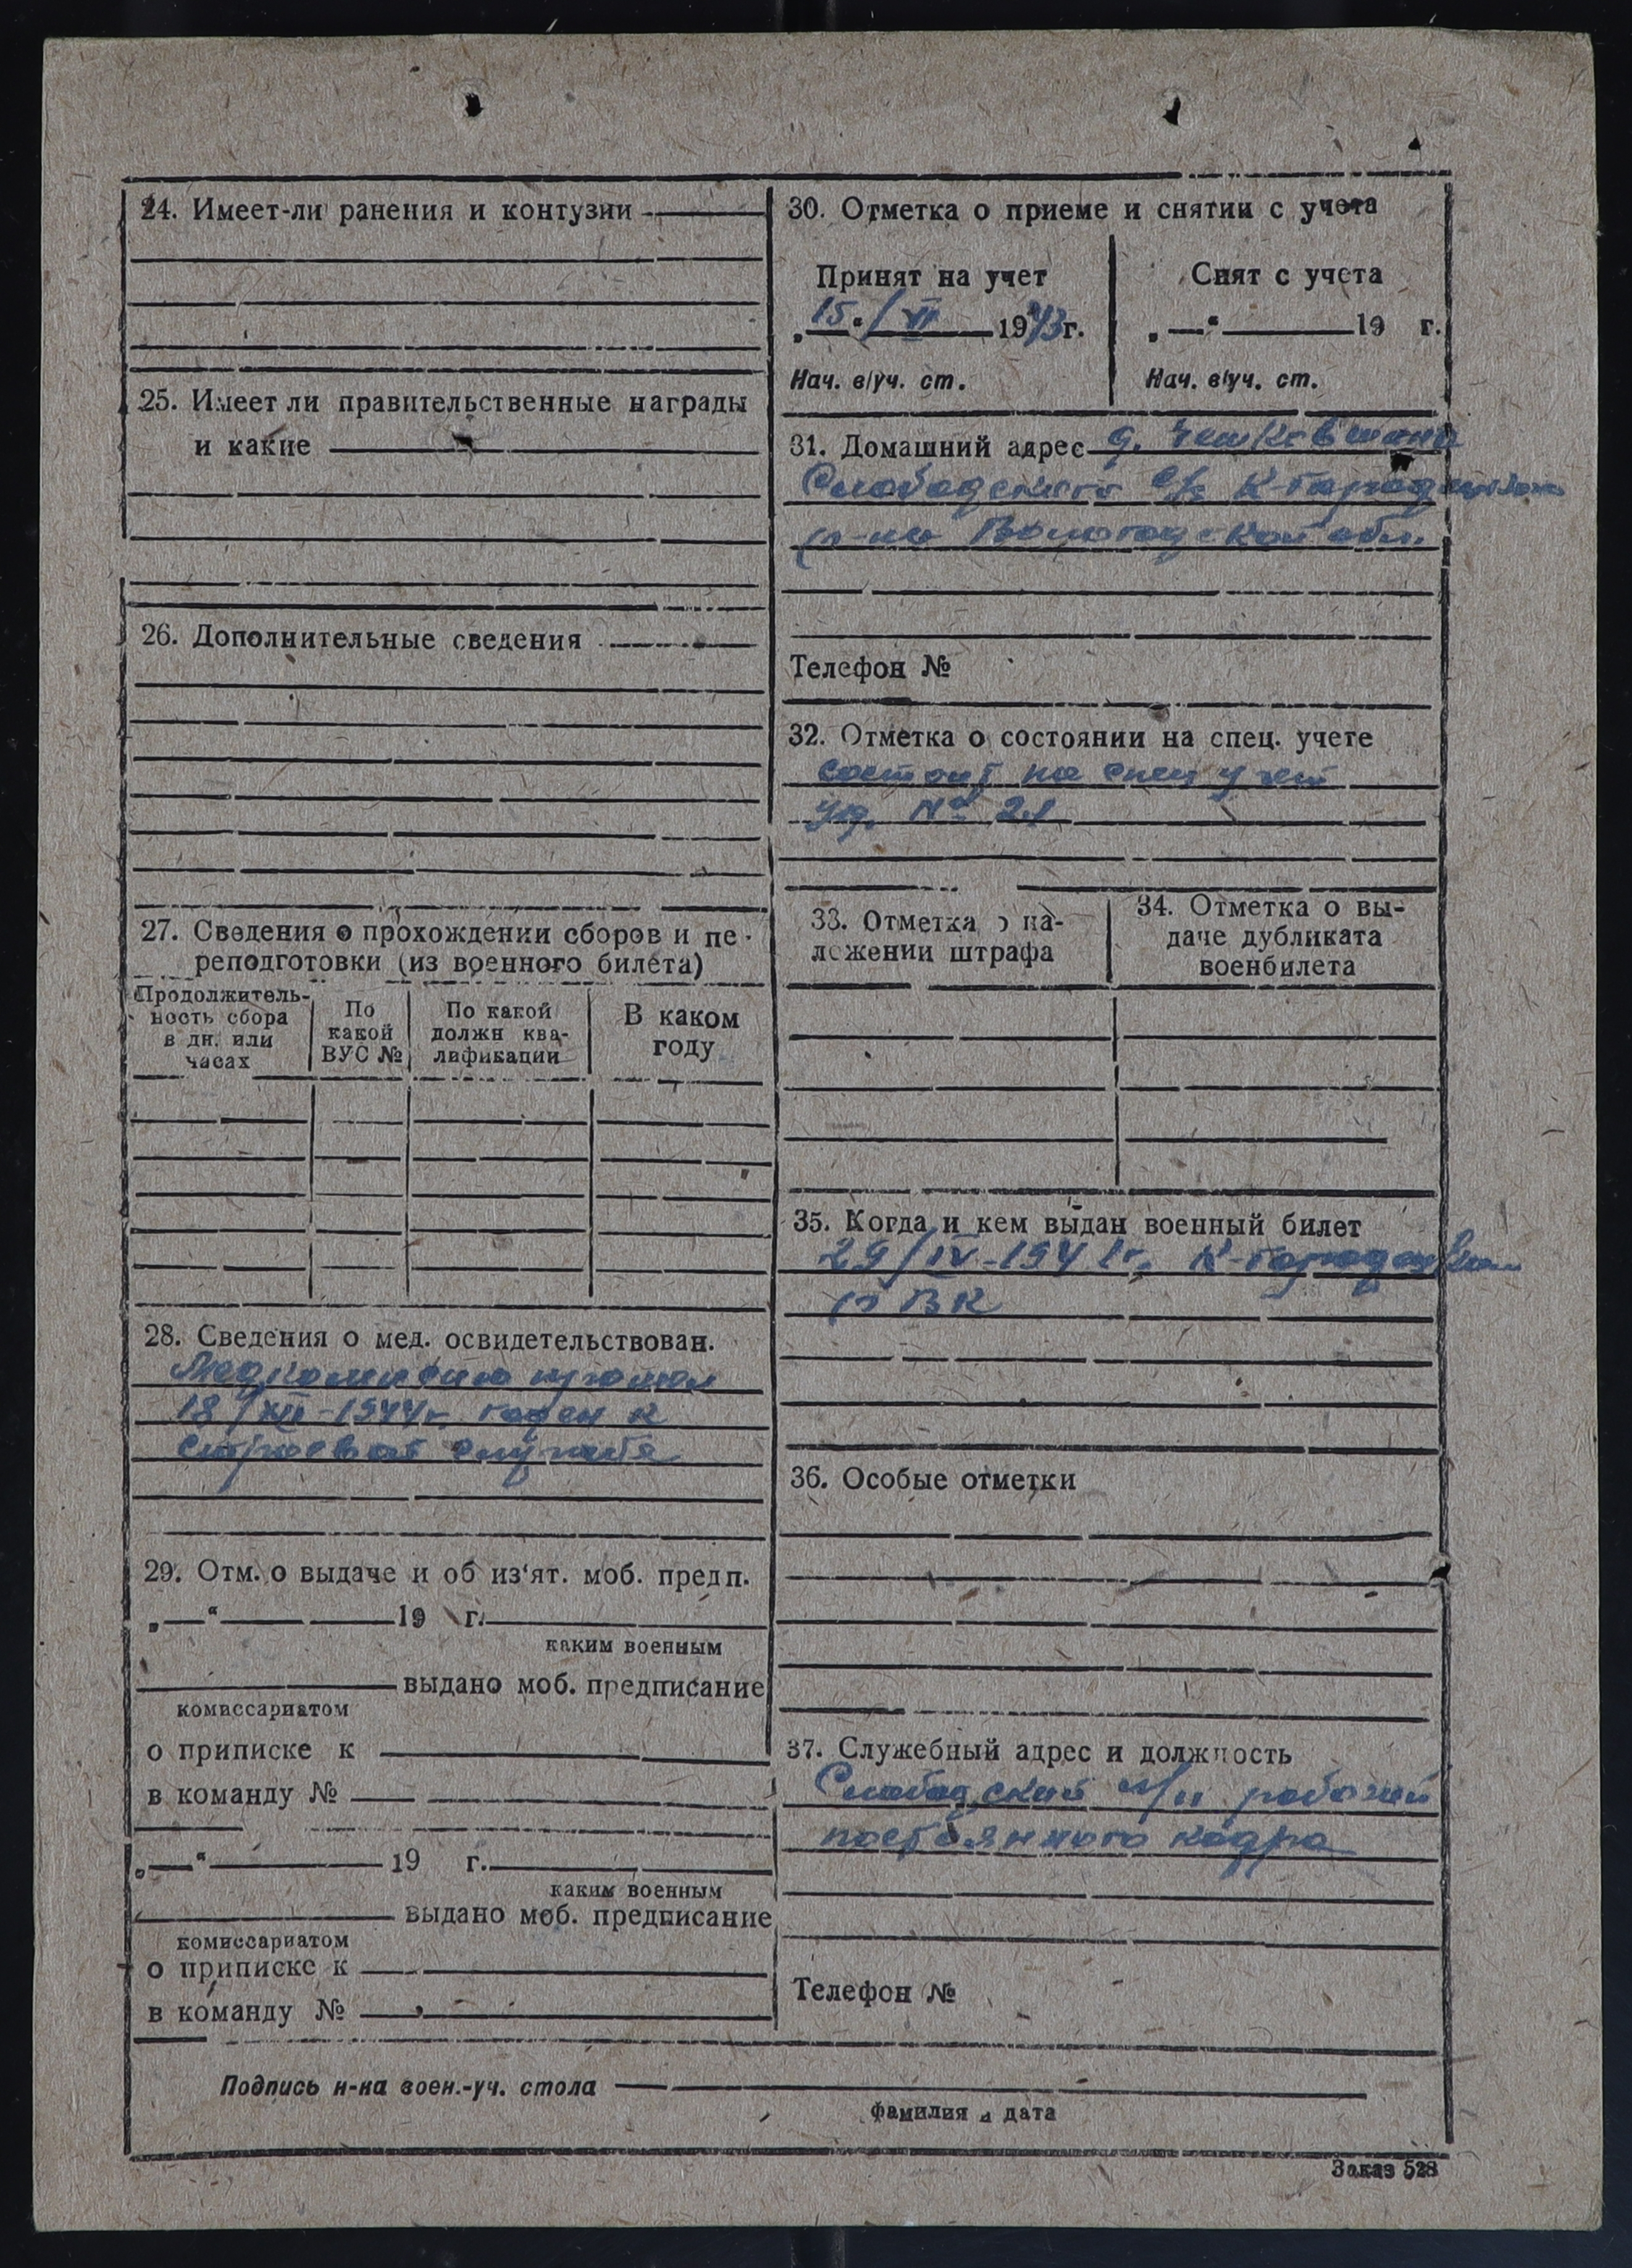 24. Имеет-ли ранения и контузии
25. Имеет ли правительственные награды
и какие
26. Дополнительные сведения
27. Сведения о прохождении сборов и пе-
реподготовки (из военного билета)
Продолжитель-
ность сбора
в дн. или
часах
По
какой
ВУС №
По какой
должн ква-
лификации
В каком
году
28. Сведения о мед. освидетельствован.
Медкомиссию прошел
18/XII-1944г. годен к
строевой службе
29. Отм. о выдаче и об из‘ят. моб. предп.
„ “ 19 г.
каким военным
выдано моб. предписание
комиссариатом
о приписке к
в команду №
„ “ 19 г.
каким военным
выдано моб. предписание
комиссариатом
о приписке к
в команду №
30. Отметка о приеме и снятии с учета
Принят на учет
„15“/VI 1943г.
Нач. в/уч. ст.
Снят с учета
„ “ 19 г.
Нач. в/уч. ст.
31. Домашний адрес д.
Слободского с/с К-Городецкого
р-на Вологодской обл.
Телефон №
32. Отметка о состоянии на спец. учете
состоит на спец учет
№ 21
33. Отметка о на-
ложении штрафа
34. Отметка о вы-
даче дубликата
военбилета
35. Когда и кем выдан военный билет
29/IV-1941г. К-Городецким
РВК
36. Особые отметки
37. Служебный адрес и должность
Слободский л/п рабочий
постоянного кадра
Телефон №
Подпись н-ка воен.-уч. стола
фамилия и дата
Заказ 528